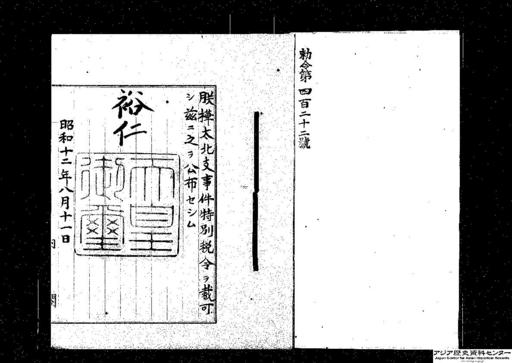 勅令第四百二十二號
朕樺太北支事件特別税令ヲ裁可
シ茲ニ之ヲ公布セシム
裕仁
天皇御璽
昭和十二年八月十一日
内閣
アジア歴史資料センター
Japan Center for Asian Historical Records